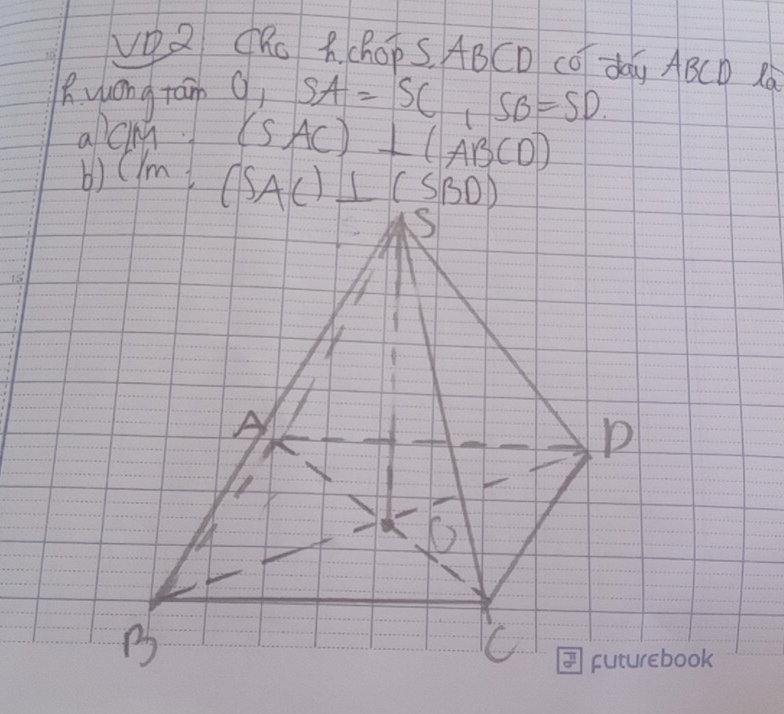 VD2 Cho h.chóp S.ABCD có đáy ABCD là
h.vuông tâm O, SA = SC, SB = SD.
a) C/M: (SAC) ⊥ (ABCD)
b) C/m: (SAC) ⊥ (SBD)
S
A
D
O
B
C
FUTUREBOOK